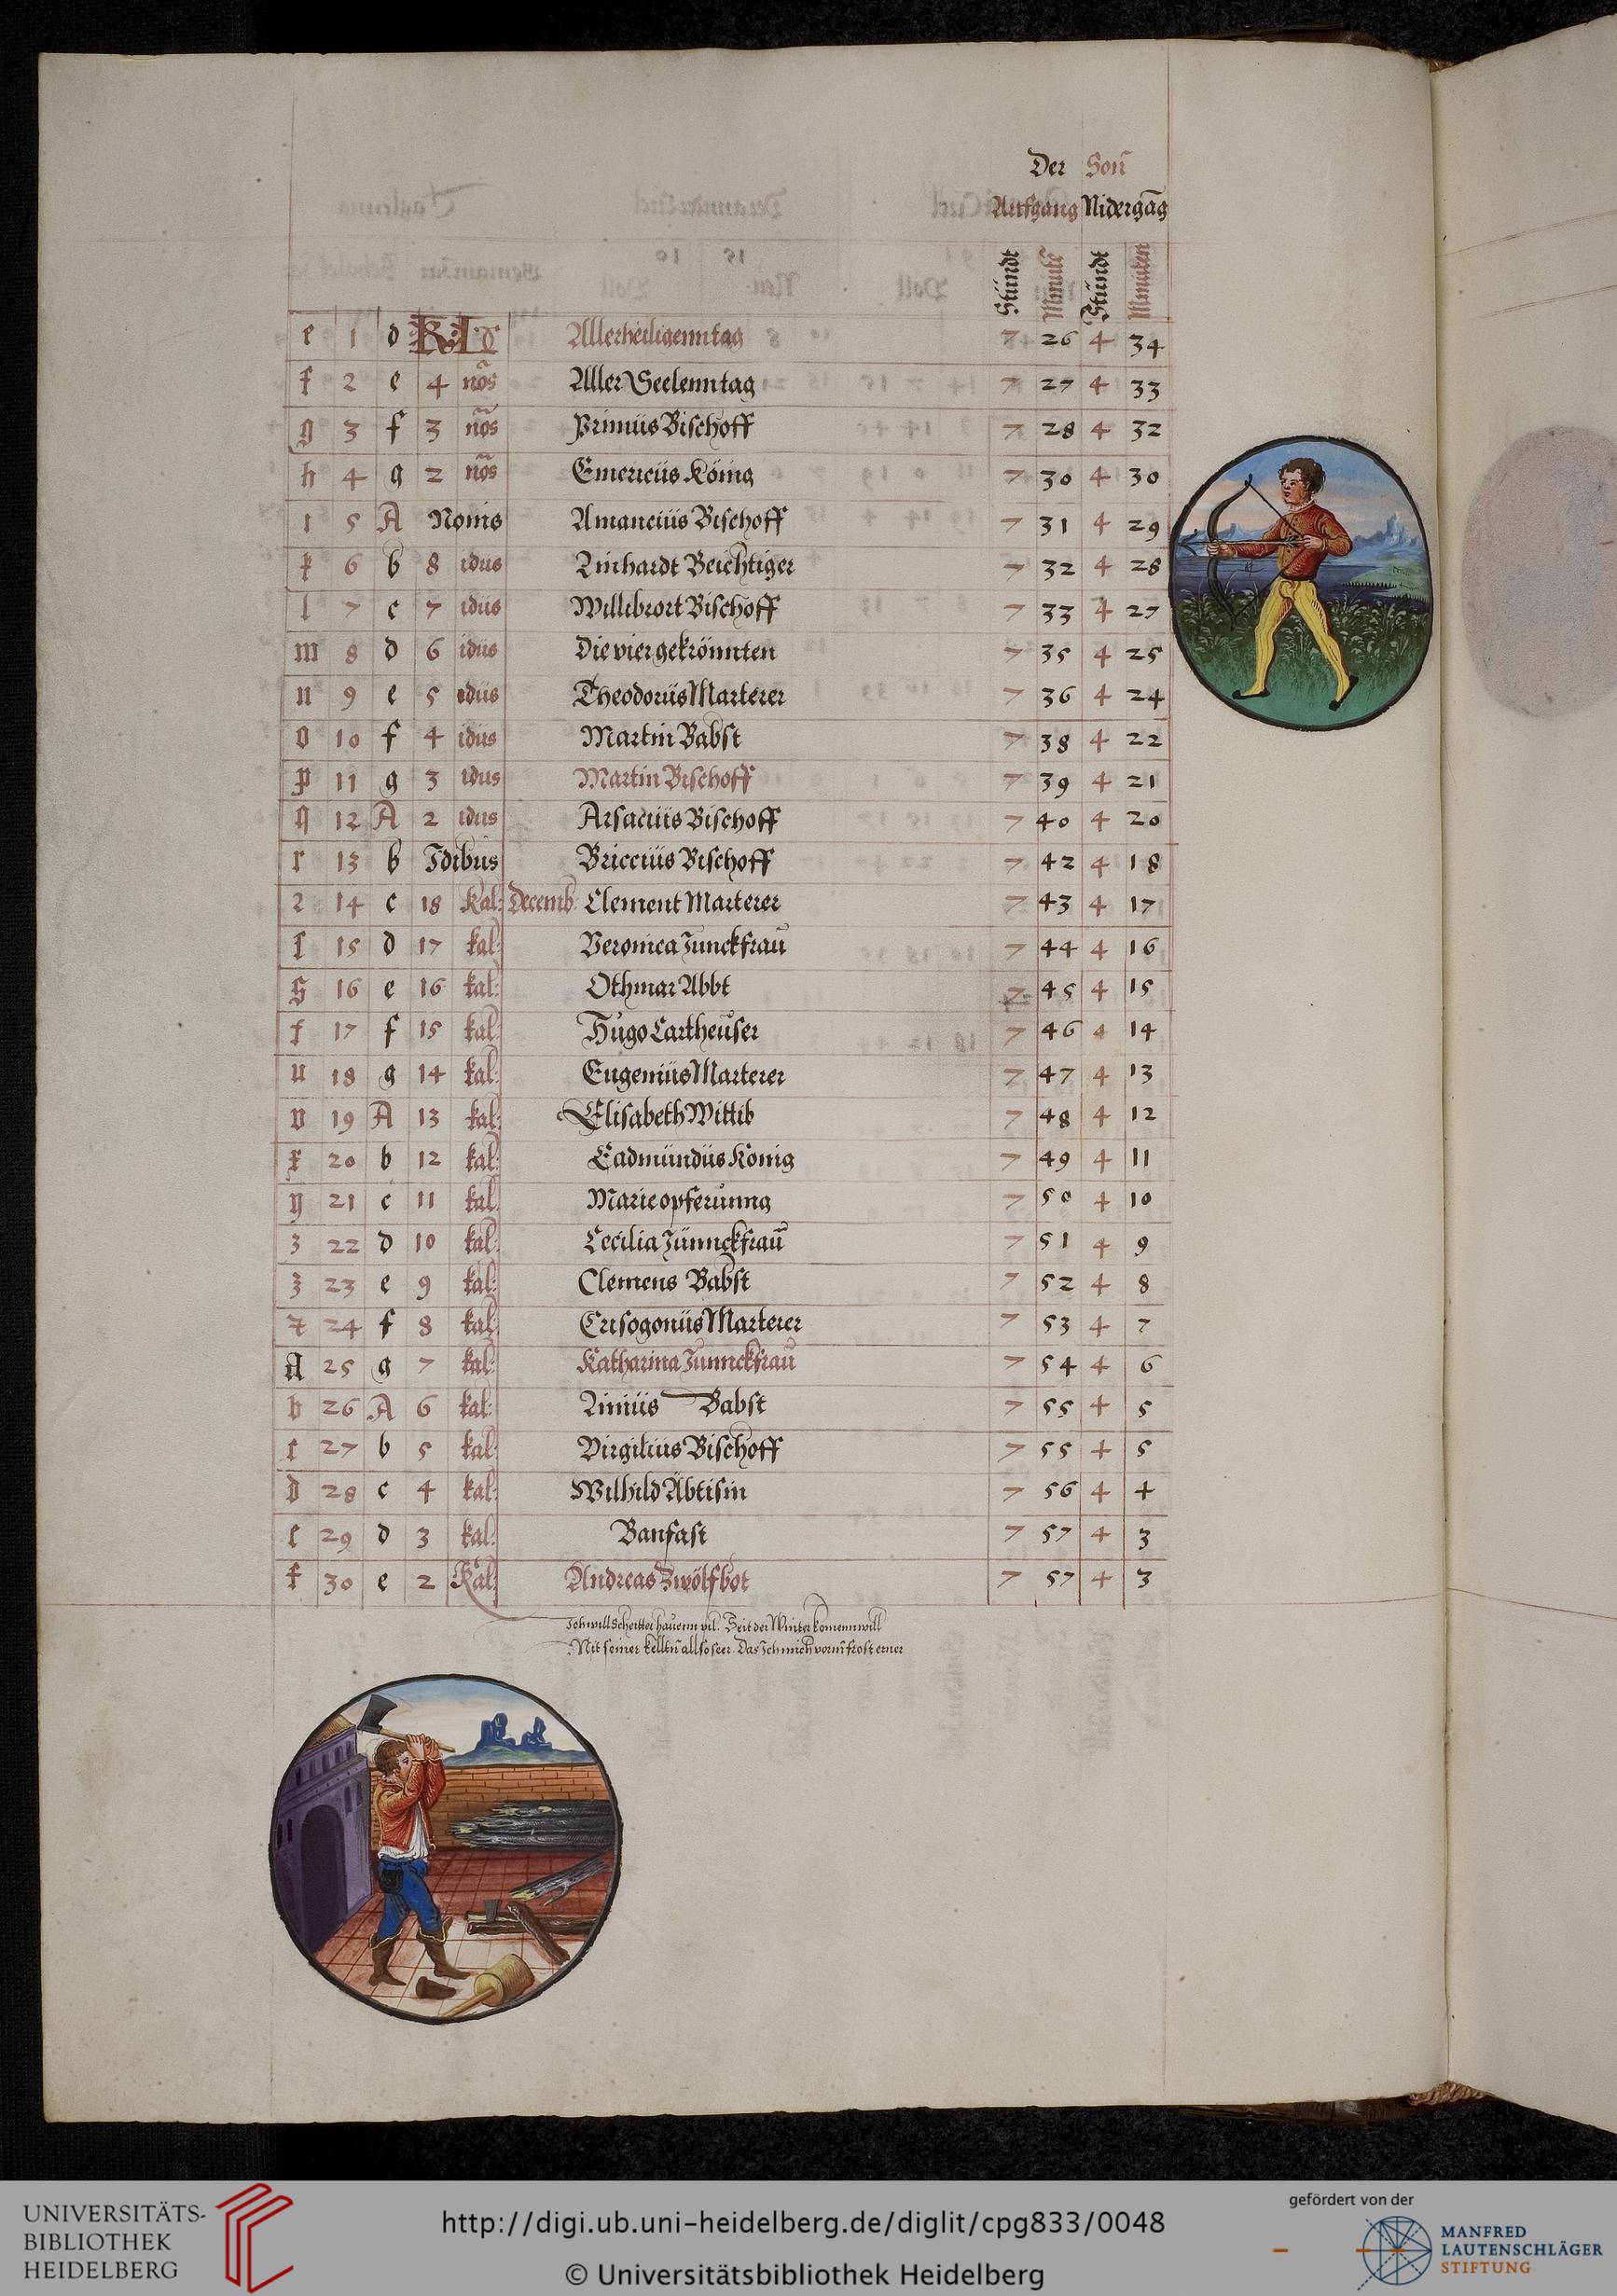 Der Son̄
Aufgang Nidergāg
Stündt Minute Stündt Minuten
e 1 d KL Allerheiligenntag 7 26 4 34
f 2 e 4 nōs Aller Seelenntag 7 27 4 33
g 3 f 3 nōs Primüs Bischoff 7 28 4 32
h 4 g 2 nōs Emericüs König 7 30 4 30
i 5 A Nonis Amancüs Bischoff 7 31 4 29
k 6 b 8 idüs Linhardt Beichtiger 7 32 4 28
l 7 c 7 idüs Willibrort Bischoff 7 33 4 27
m 8 d 6 idüs Die vier gekrönnten 7 35 4 25
n 9 e 5 idüs Theodorüs Marterer 7 36 4 24
o 10 f 4 idüs Martin Babst 7 38 4 22
p 11 g 3 idus Martin Bischoff 7 39 4 21
q 12 A 2 idus Arsacius Bischoff 7 40 4 20
r 13 b Idibus Briccius Bischoff 7 42 4 18
2 14 c 18 Kal: Decemb: Clement Marterer 7 43 4 17
ſ 15 d 17 kal: Veronica Junckfraü 7 44 4 16
S 16 e 16 kal: Othmar Abbt 7 45 4 15
t 17 f 15 kal: Hugo Cartheüser 7 46 4 14
u 18 g 14 kal: Eugenius Marterer 7 47 4 13
v 19 A 13 kal: Elisabeth Wittib 7 48 4 12
x 20 b 12 kal: Eadmündüs König 7 49 4 11
y 21 c 11 kal: Marie opferunng 7 50 4 10
z 22 d 10 kal: Cecilia Jünnckfraü 7 51 4 9
3 23 e 9 kal: Clemens Babst 7 52 4 8
7 24 f 8 kal: Crisogonüs Marterer 7 53 4 7
A 25 g 7 kal: Katharina Junnckfraü 7 54 4 6
b 26 A 6 kal: Linüs Babst 7 55 4 5
c 27 b 5 kal: Virgilius Bischoff 7 55 4 5
d 28 c 4 kal: Wilhild Äbtisin 7 56 4 4
e 29 d 3 kal: Banfast 7 57 4 3
f 30 e 2 Kal: Andreas Zwölfbot 7 57 4 3
Ich will Scheitter hauenn vil. Zeit der Winter komenn will
Mit seiner kelltn̄ allso seer. Das Ich mich vorm frost erner
UNIVERSITÄTS-
BIBLIOTHEK
HEIDELBERG
http://digi.ub.uni-heidelberg.de/diglit/cpg833/0048
© Universitätsbibliothek Heidelberg
gefördert von der
MANFRED
LAUTENSCHLÄGER
STIFTUNG